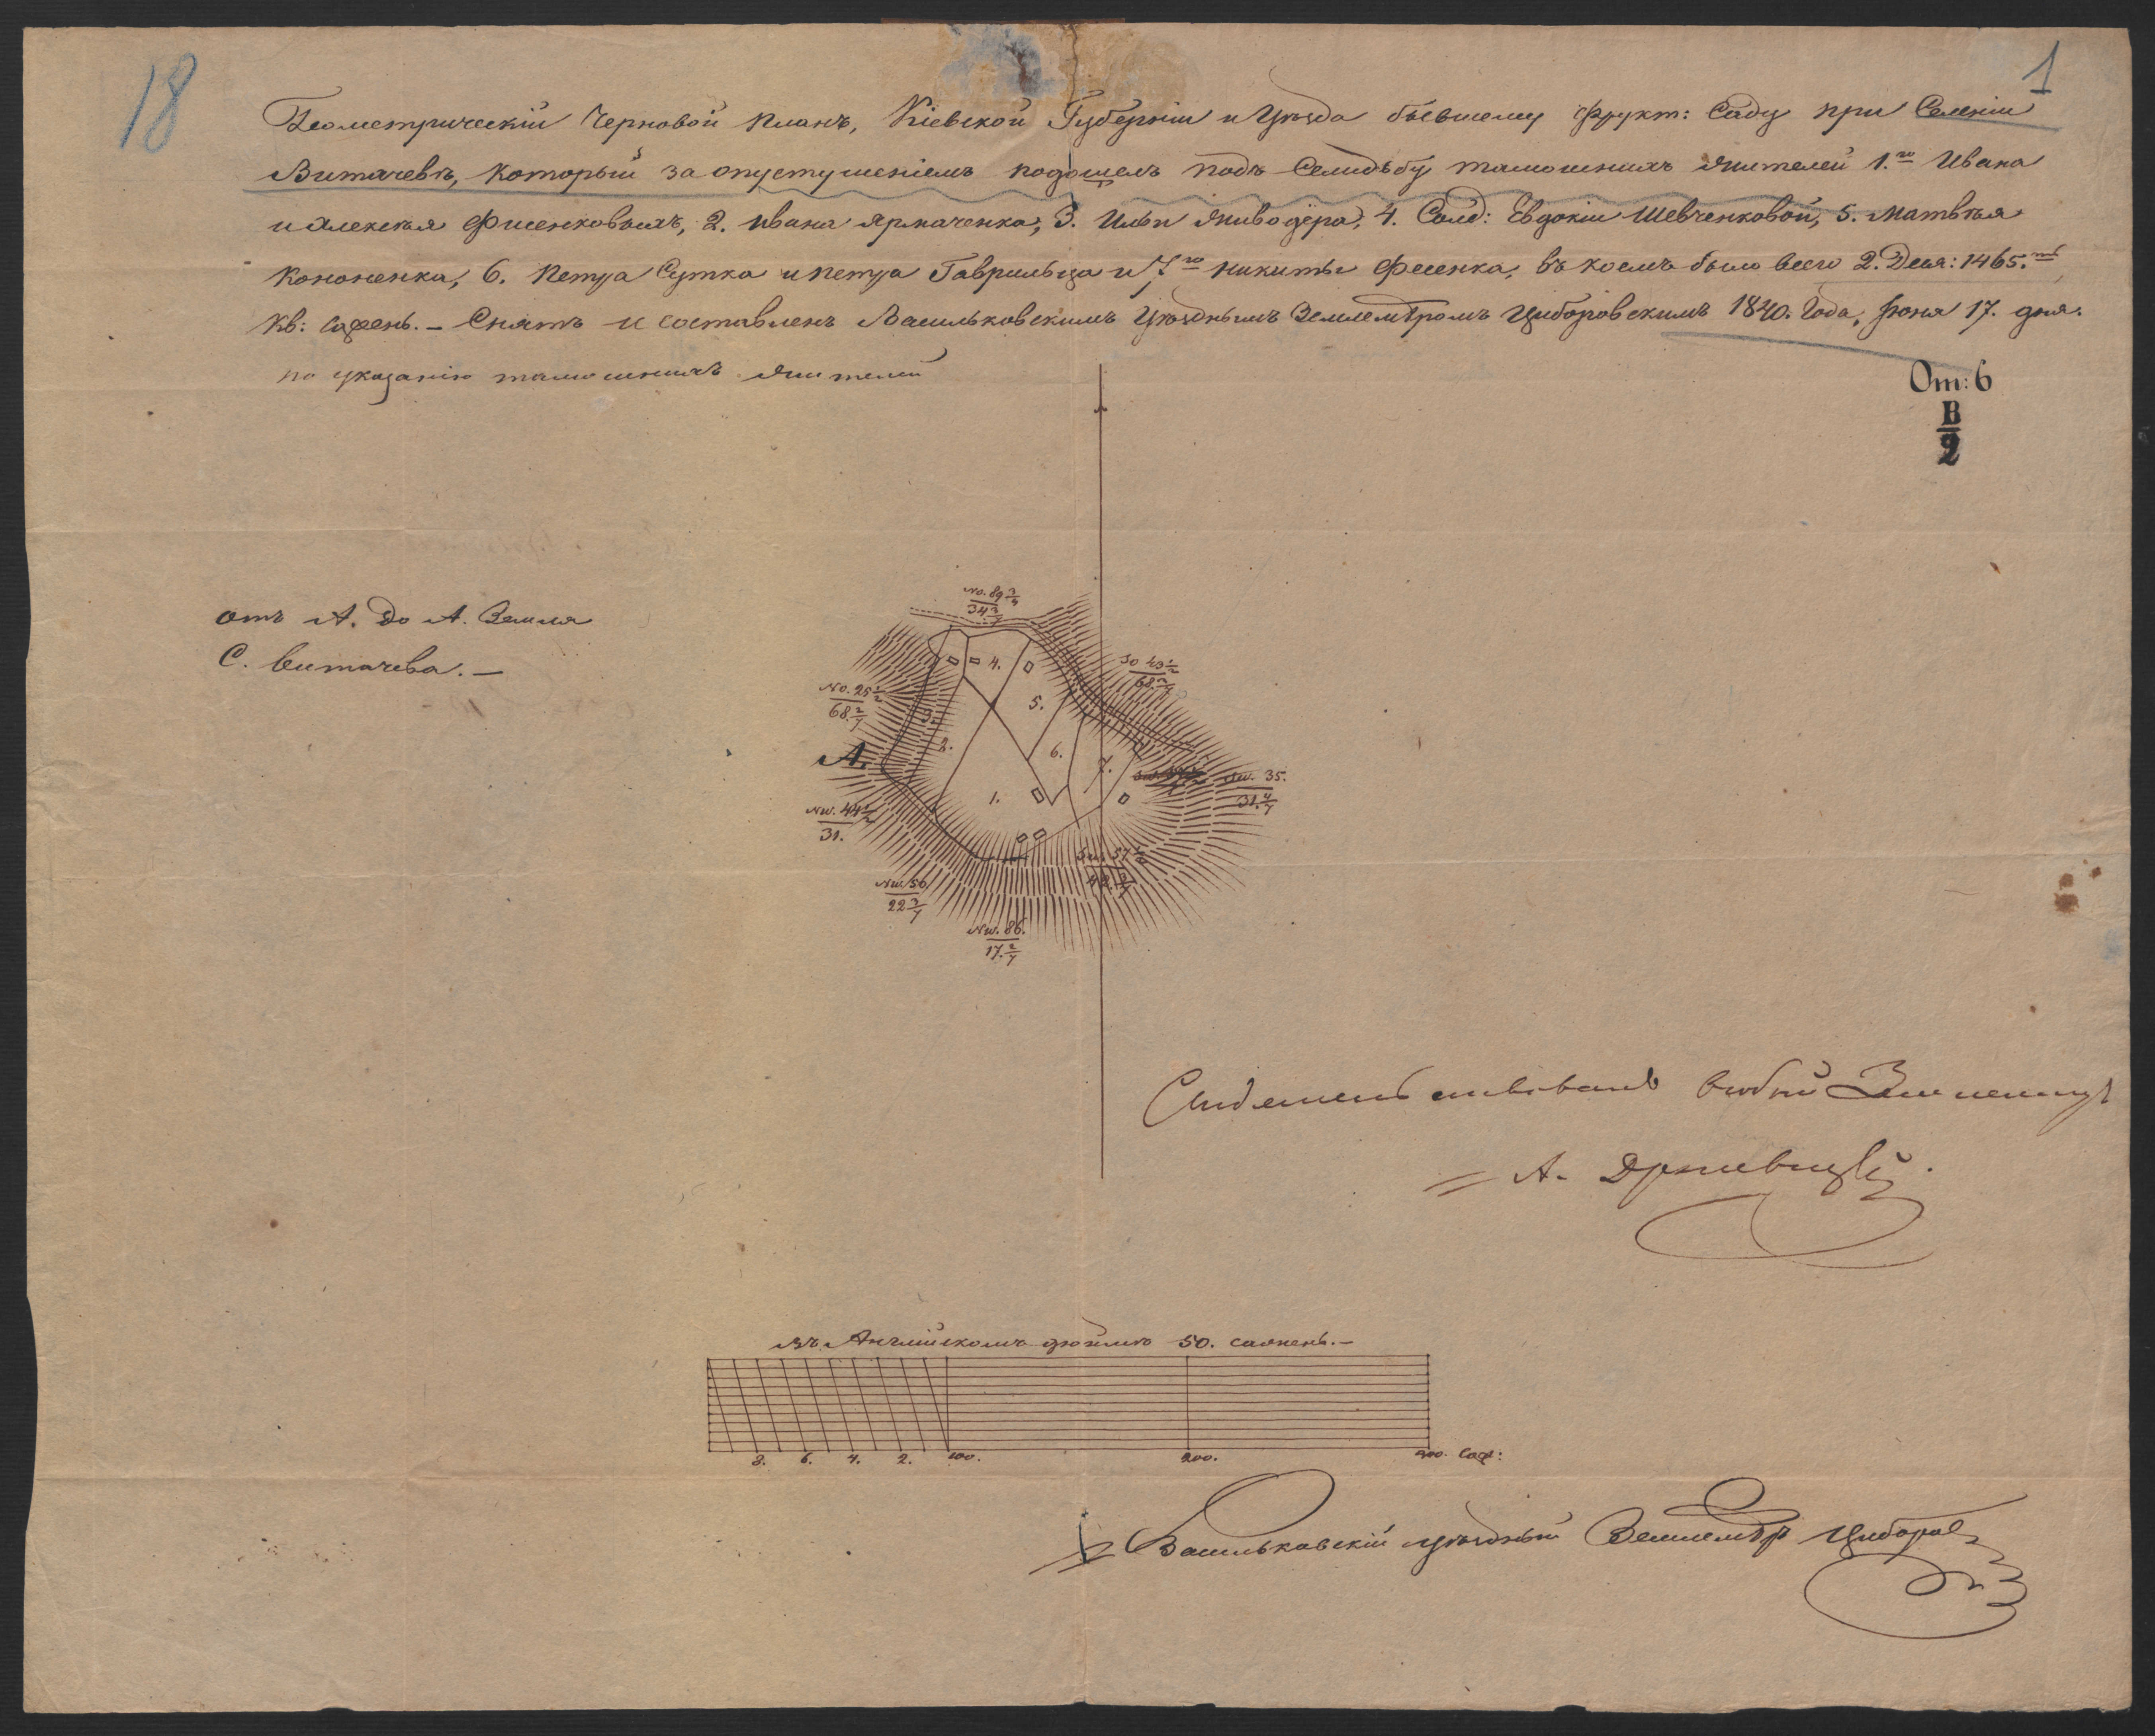 18
1
Геометрическій Черновой планъ, Кіевской Губерніи и Уѣзда бывшему фрукт: Саду при Селеніи
Витачевѣ, который за опустушеніемъ подошелъ подъ Селидьбу тамошнихъ жителей 1.го Ивана
и Алексѣя Фисенковыхъ, 2. Ивана Ярмаченка, 3. Ильи Живодёра, 4. Солд: Евдокіи Шевченковой, 5. Матвѣя
Кононенка, 6. Петра Сутка и Петра Гаврильца и 7го Никиты Фесенка, въ коемъ было всего 2. Деся: 1465.ть
кв: сажень. – Снятъ и составленъ Васильковскимъ Уѣзднымъ Землемѣромъ Циборовскимъ 1840. Года, Іюня 17. дня.
по указанію тамошнихъ жителей
От: 6
В
2
отъ А. до А. Земля
С. Витачева. –
No. 89 3/4
34 3/7
SO 43 1/2
68 3/7
No. 25 1/2
68. 2/7
4.
5.
3.
2.
6.
7.
1.
А.
35.
31. 4/7
Nw. 44 1/2
31.
Sw. 57 1/2
Nw. 56.
22 3/7
Nw. 86.
17. 2/7
А.
Въ Англійскомъ дюймѣ 50. сажень. –
8. 6. 4. 2. 100. 200. 300. Саж:
Васильковскій уѣздный Землемѣръ Циборов